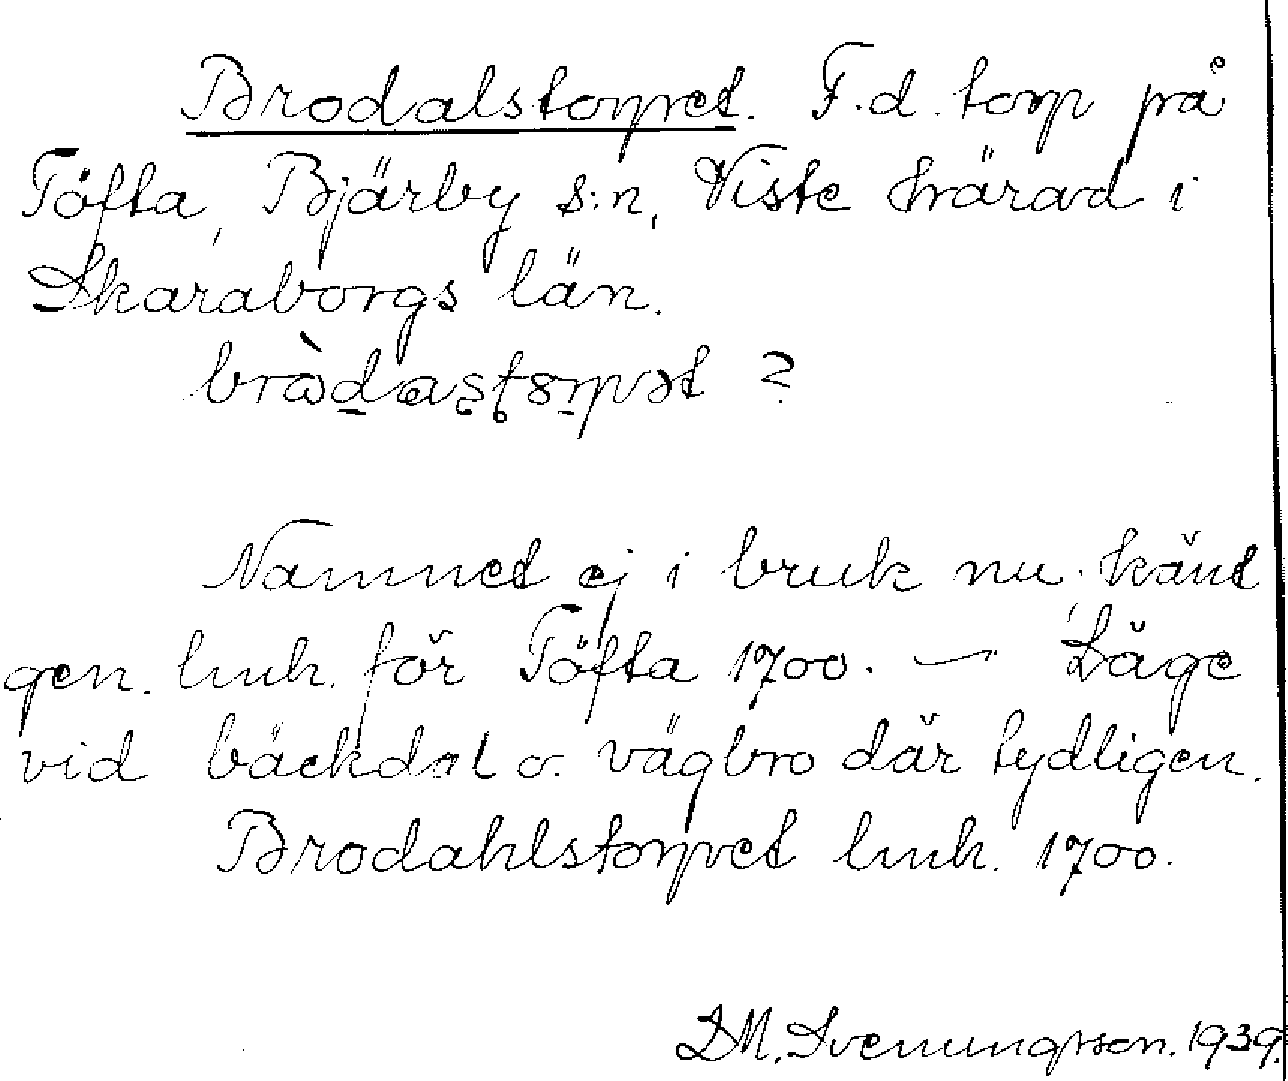 Brodalstorpet. F.d. torp på
Töfta, Bjärby s:n, Viste härad i
Skaraborgs län.
bròdastorpət ?
Namnet ej i bruk nu, känt
gen. lmh. för Töfta 1700. — Läge
vid bäckdal o. vägbro där tydligen.
Brodahlstorpet lmh. 1700.
DM. Svenungsson. 1939.